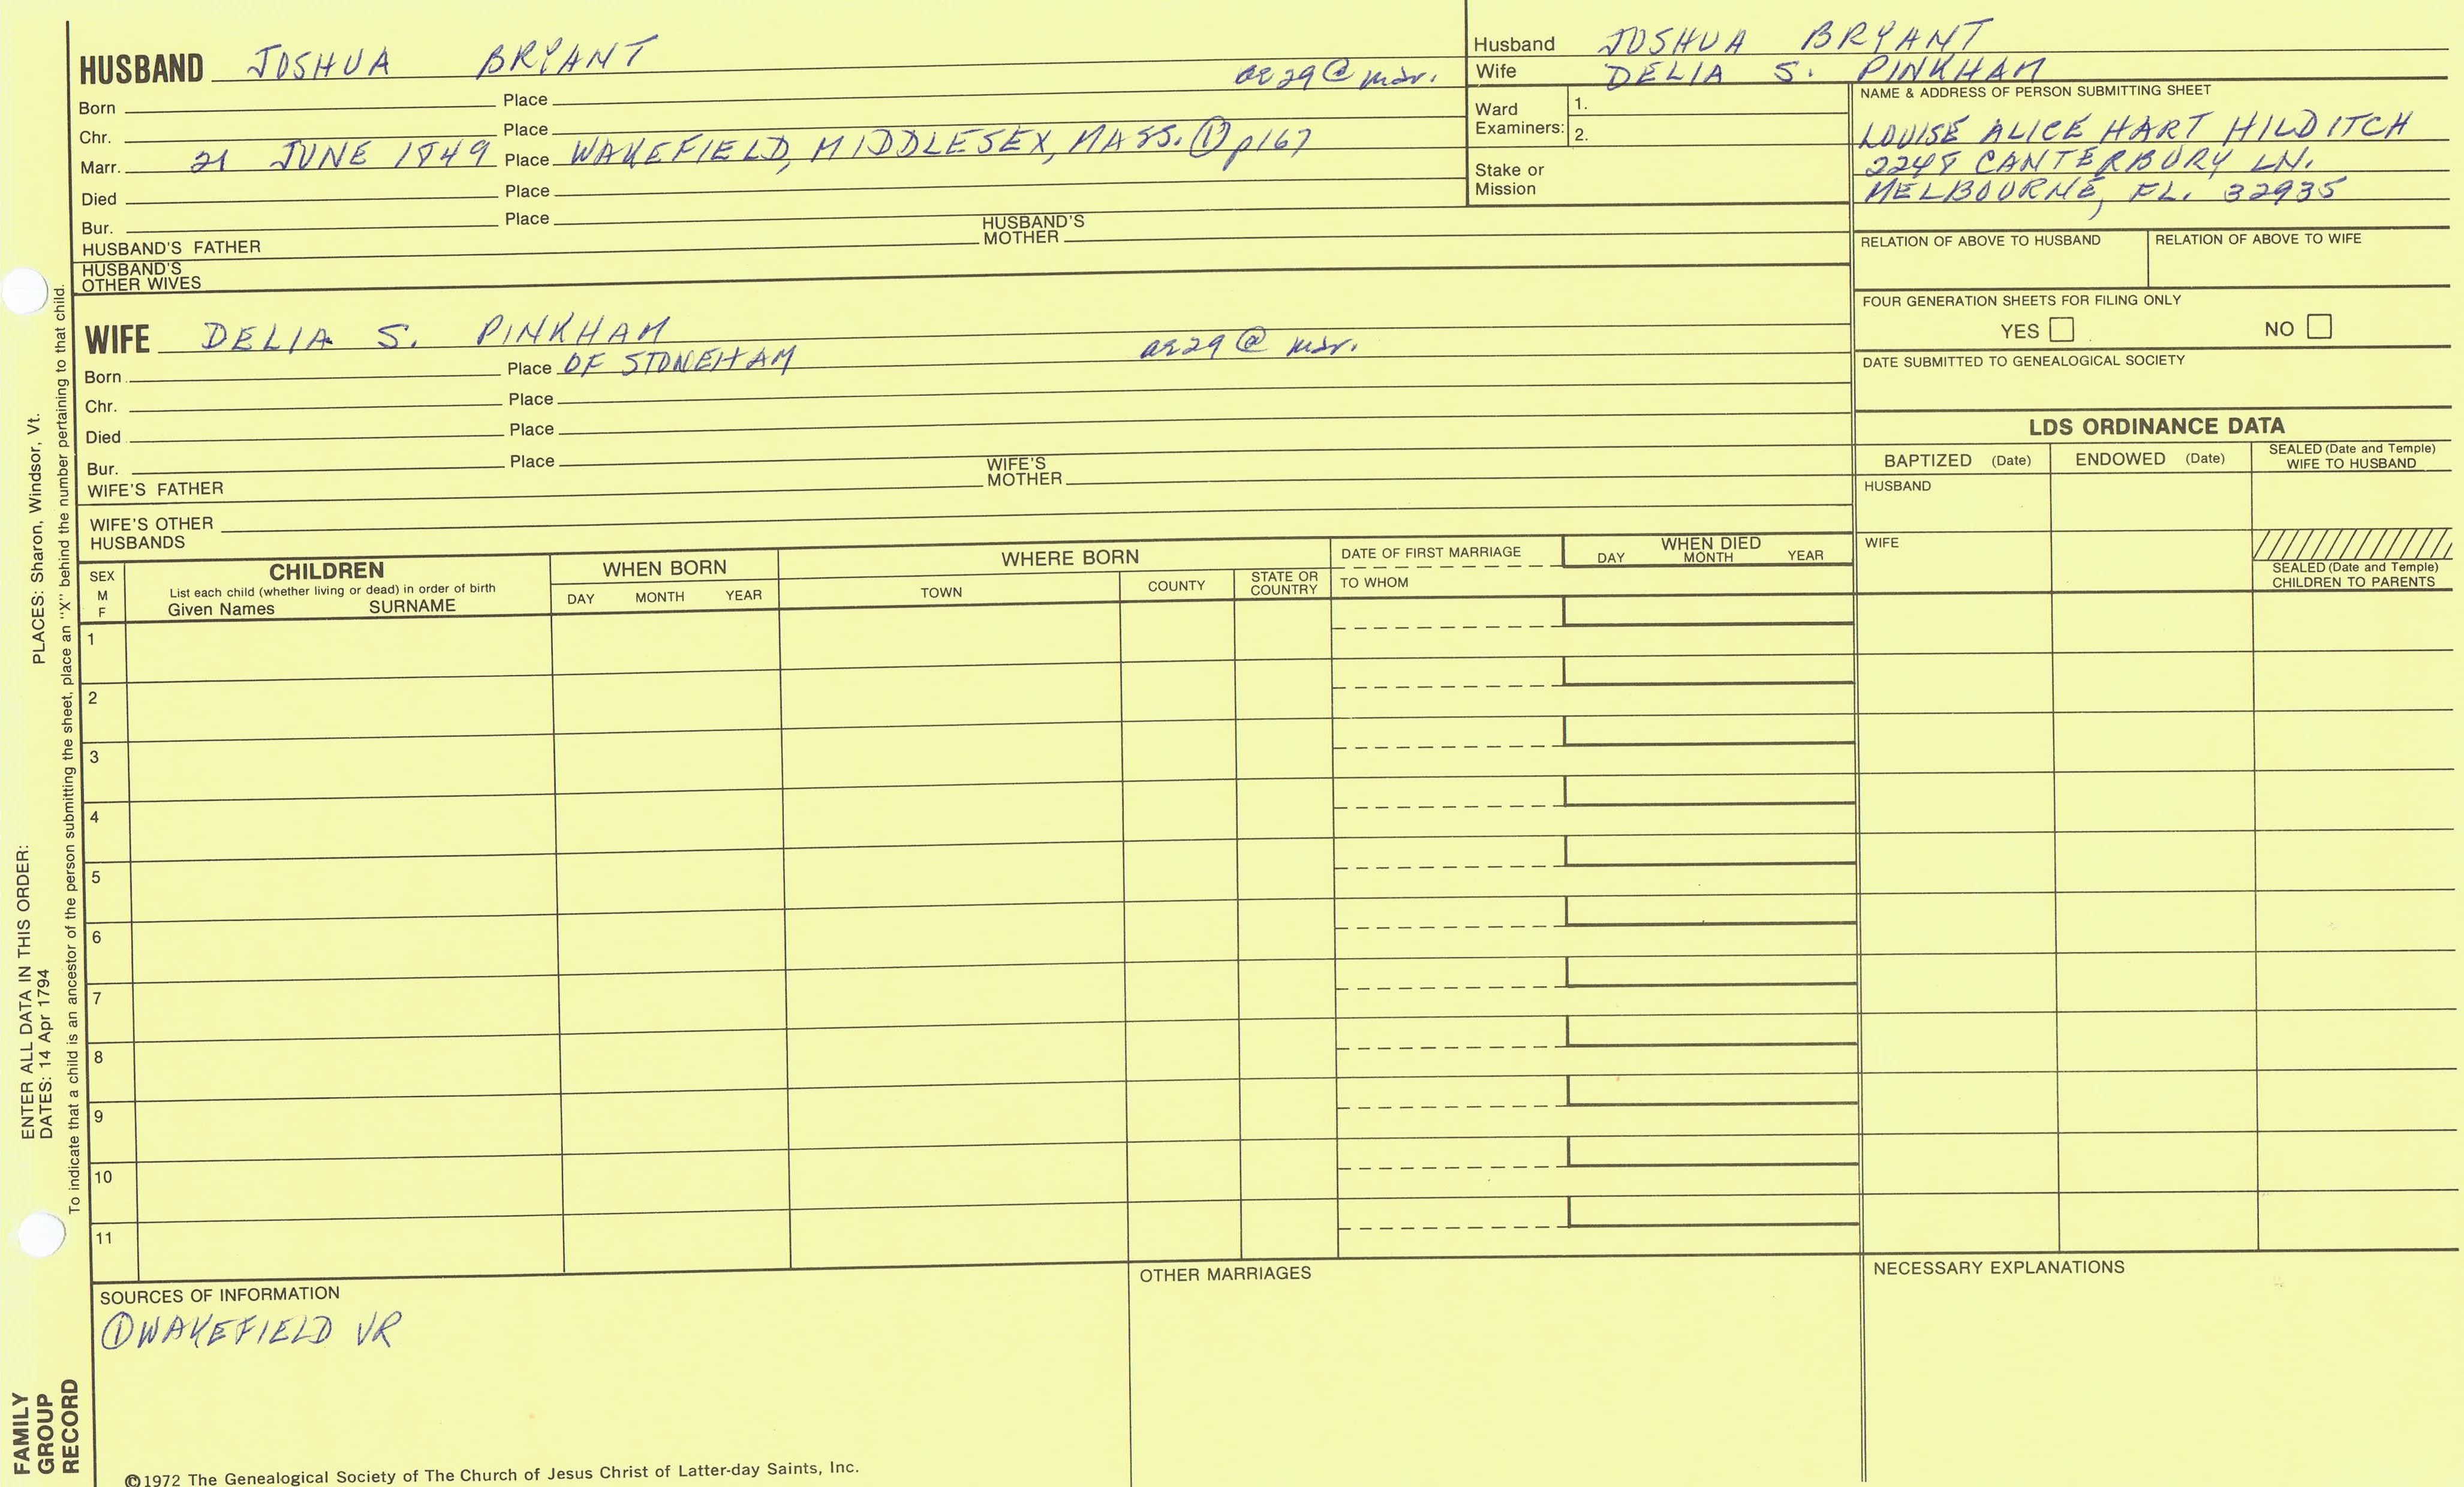 HUSBAND JOSHUA BRYANT ae 29 @ mar.
Born Place
Chr. Place
Marr. 21 JUNE 1849 Place WAKEFIELD, MIDDLESEX, MASS. ① p167
Died Place
Bur. Place
HUSBAND'S FATHER HUSBAND'S MOTHER
HUSBAND'S
OTHER WIVES
WIFE DELIA S. PINKHAM ae 29 @ mar.
Born Place OF STONEHAM
Chr. Place
Died Place
Bur. Place
WIFE'S FATHER WIFE'S MOTHER
WIFE'S OTHER
HUSBANDS
Husband JOSHUA BRYANT
Wife DELIA S. PINKHAM
Ward
Examiners:
1.
2.
Stake or
Mission
NAME & ADDRESS OF PERSON SUBMITTING SHEET
LOUISE ALICE HART HILDITCH
2248 CANTERBURY LN.
MELBOURNE, FL. 32935
RELATION OF ABOVE TO HUSBAND RELATION OF ABOVE TO WIFE
FOUR GENERATION SHEETS FOR FILING ONLY
YES NO
DATE SUBMITTED TO GENEALOGICAL SOCIETY
LDS ORDINANCE DATA
BAPTIZED (Date) ENDOWED (Date) SEALED (Date and Temple)
WIFE TO HUSBAND
HUSBAND
WIFE
SEALED (Date and Temple)
CHILDREN TO PARENTS
SEX
M
F
CHILDREN
List each child (whether living or dead) in order of birth
Given Names SURNAME
WHEN BORN
DAY MONTH YEAR
WHERE BORN
TOWN COUNTY STATE OR
COUNTRY
DATE OF FIRST MARRIAGE
TO WHOM
WHEN DIED
DAY MONTH YEAR
1
2
3
4
5
6
7
8
9
10
11
SOURCES OF INFORMATION
① WAKEFIELD VR
OTHER MARRIAGES
NECESSARY EXPLANATIONS
©1972 The Genealogical Society of The Church of Jesus Christ of Latter-day Saints, Inc.
ENTER ALL DATA IN THIS ORDER:
DATES: 14 Apr 1794 PLACES: Sharon, Windsor, Vt.
To indicate that a child is an ancestor of the person submitting the sheet, place an "X" behind the number pertaining to that child.
FAMILY
GROUP
RECORD